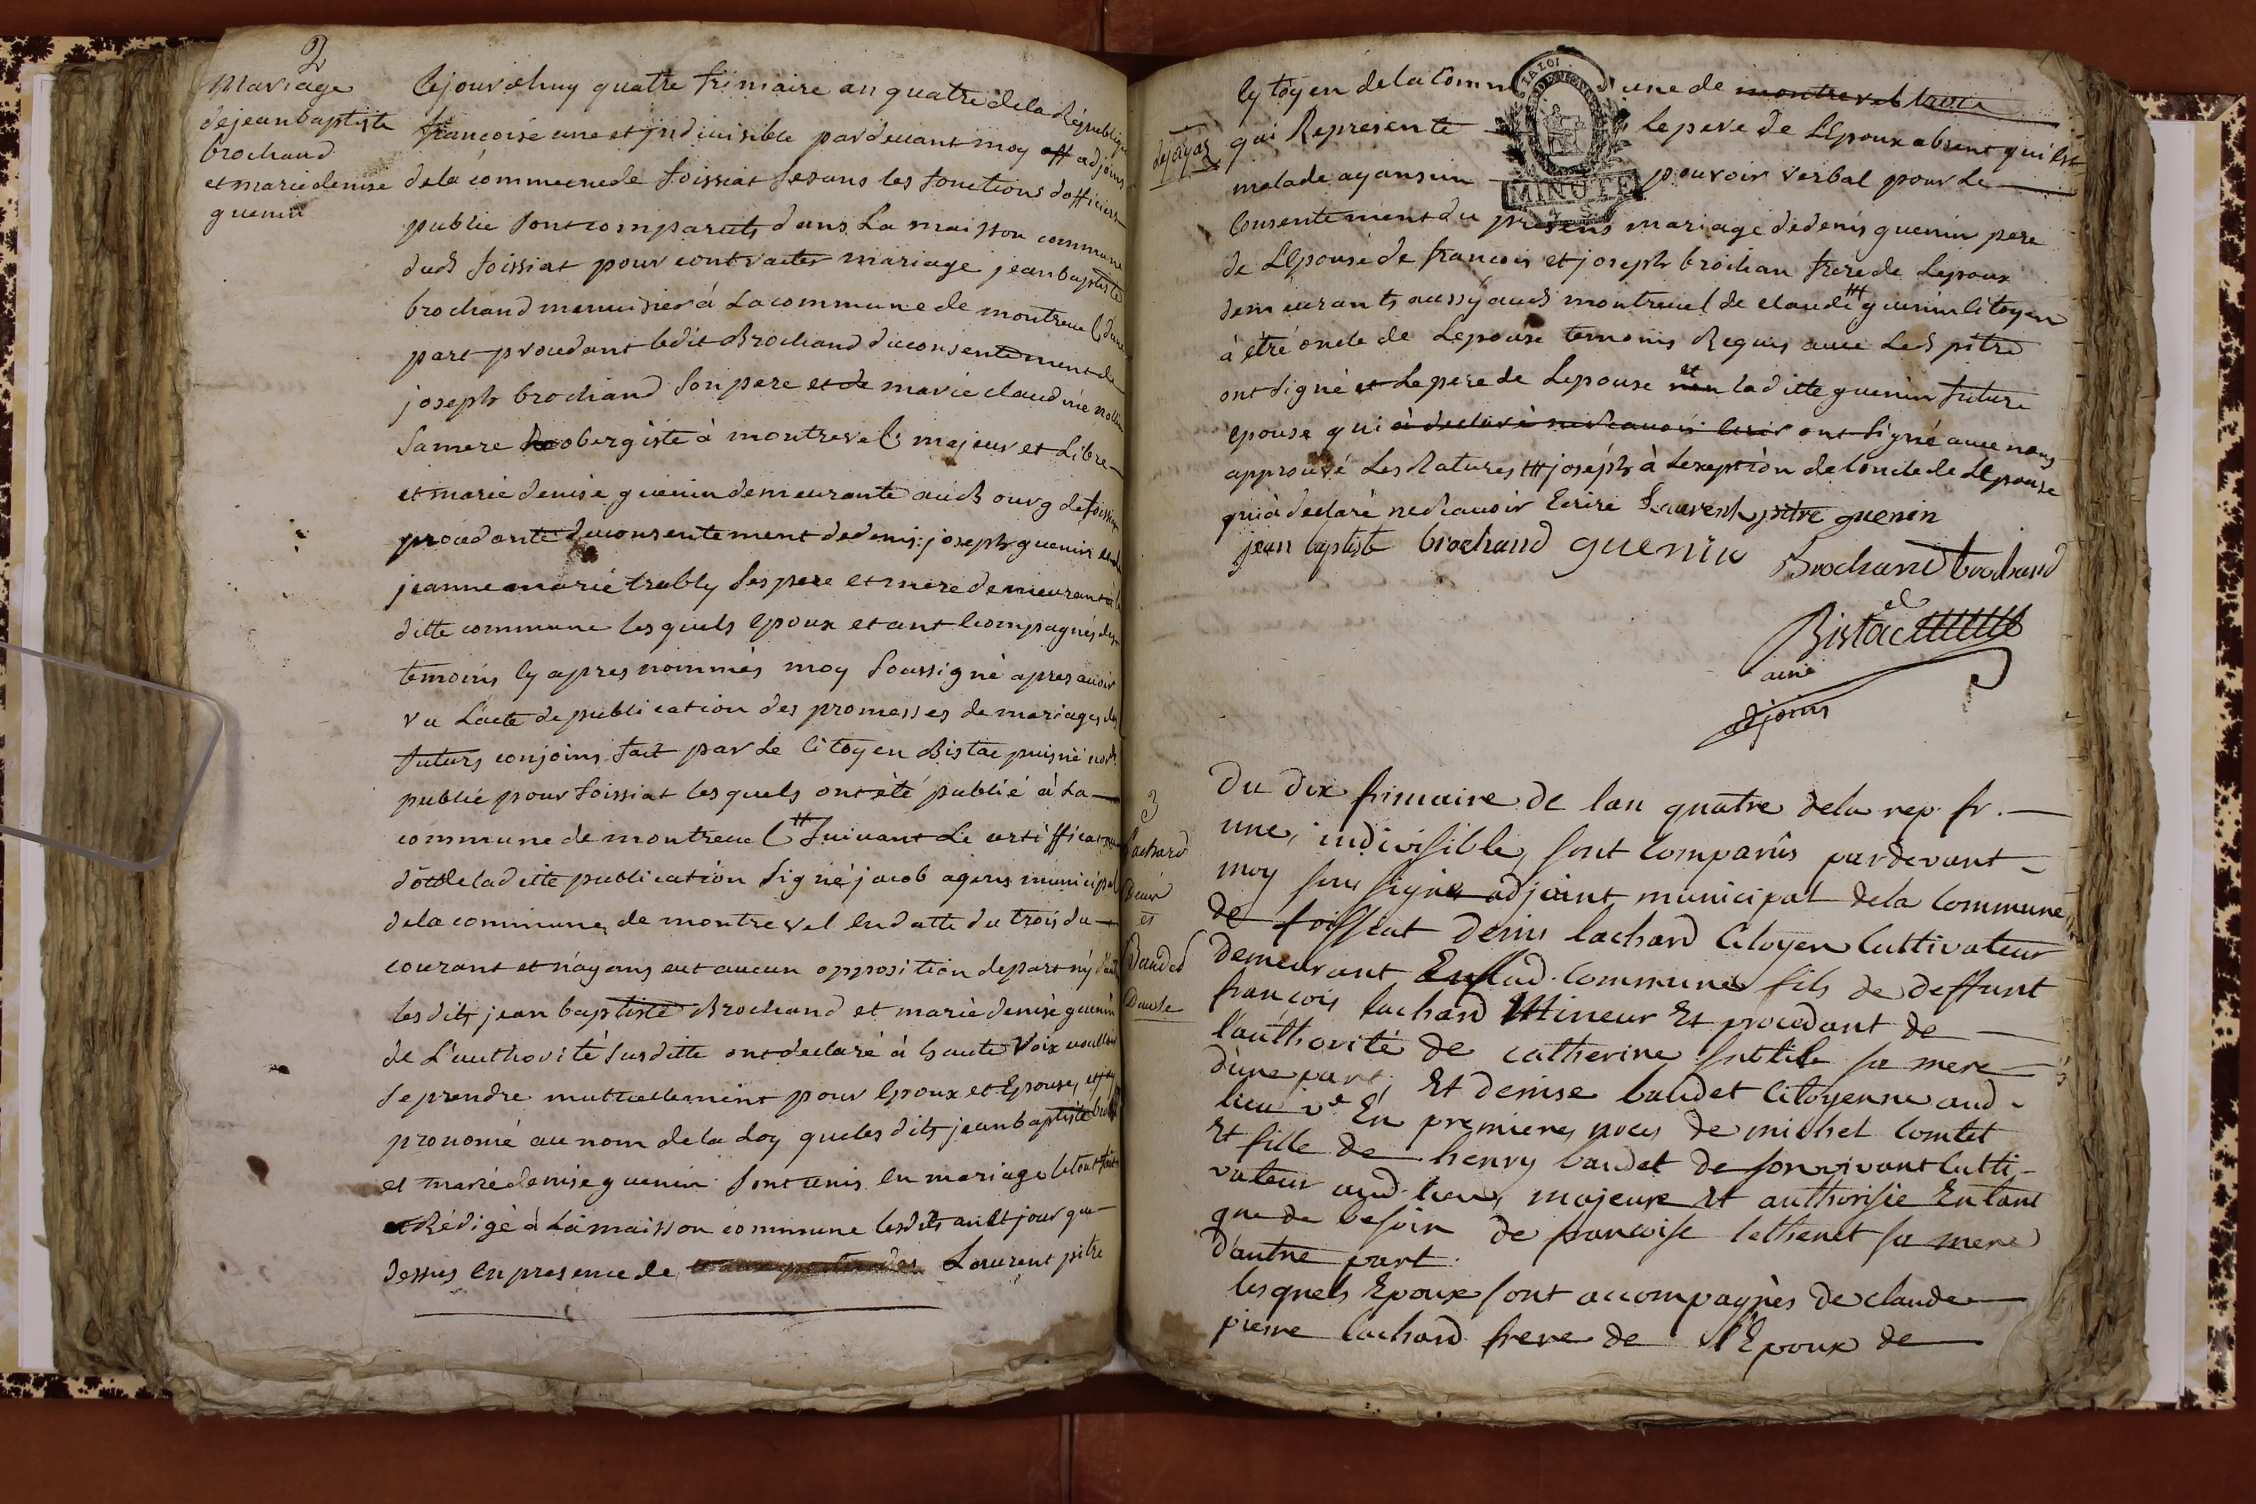 2
Mariage
de jean baptiste
brochand
et marie denise
guenin
Cejourdhuy quatre frimaire an quatre de la Republique
francoise une et jndivisible pardevant moy off adjoins
de la commune de foissiat fesans les fonctions dofficiers
public sont comparuts dans La maisson commune
dud foissiat pour contracter mariage jean baptiste
brochand menuisier á La commune de montrevel dune
part procedant ledit Brochand du consentement de
joseph brochand son pere et de marie claudine
sa mere obergiste à montrevel majeur et Libre
et marie denise guenin demeurante aud bourg de foissia
procedante du consentement de denis: joseph guenin et de
jeanne marie trably ses pere et mere demeurant à la
ditte commune lesquels Epoux etant accompagnés des
temoins cy apres nommés moy soussigné apres avoir
vu L'acte de publication des promesses de mariages des
futurs conjoins fait par le Citoyen Bistac puisné
publié pour foissiat lesquels ont été publié à La
commune de montrevel suivant Le certifficat
de ladite publication signé jacob agens municipal
de la commune de montrevel en datte du trois du
courant et n'ayans eut aucun opposition depart ny d'autre
les dits jean baptiste Brochand et marie denise guenin
de L'authorité susdite ont declaré à haute Voix voulloir
se prendre mutuellement pour Epoux et Epouse, et j'ay
pronomé au nom de la Loy que les dits jean baptiste
et marie denise guenin sont unis en mariage le tout fait
et Rédigé à La maisson commune lesdits an et jour que
dessus en presence de Laurent pitre
Cytoyen de la Commune de montrevel
dejayaz
LA LOI
MINUTE
qui Represente le pere de L'Epoux absent qui est
malade ayans un pouvoir verbal pour Le
Consentement du presens mariage de denis guenin pere
de L'Epouse de francois et joseph brochan frere de Lepoux
demeurants aussy aud montrevel de claude guenin Citoyen
à étré oncle de Lepouse temoins Requis avec Led pitre
ont signé et Le pere de Lepouse et laditte guenin future
epouse qui à declaré ne scavoir ecrir ont signé avec nous
approuvé Les Ratures joseph à Lexeption de loncle de LEpouse
qui à declaré ne scavoir Ecrire Laurent pitre guenin
jean baptiste brochand guenin Brochand brochand
Bistac
ainé
adjoins
3
Lachard
Denis
et
Baudet
Denise
Du dix frimaire de lan quatre de la rep. fr.
une, indivisible, sont comparûs pardevant
moy sous signé adjoint municipal de la Commune
de foissiat denis lachard Citoyen Cultivateur
demeurant En lad. Commune fils de deffunt
françois lachard Mineur Et procedant de
l'authorité de catherine sa mere
d'une part, Et denise baudet Citoyenne aud.
lieu ve En premieres noces de michel Comtet
Et fille de henry baudet de son vivant Culti-
vateur aud. lieu, majeure Et authorisée En tant
que de besoin de francoise lethenet sa mere
d'autre part.
lesquels Epoux sont accompagnés de claude
pierre lachard frere de l'Epoux de